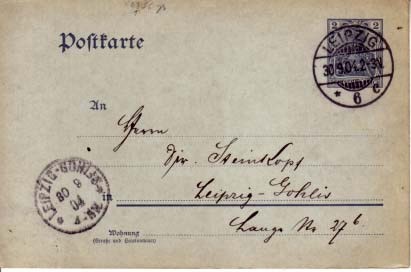 Postkarte
2 2
LEIPZIG
30.9.04.2-3N.
* 6 c.
An
Herrn
Dir. Steinkopf
in Leipzig-Gohlis
Lange No 27b
LEIPZIG-GOHLIS
30 9
04
Wohnung
(Straße und Hausnummer)